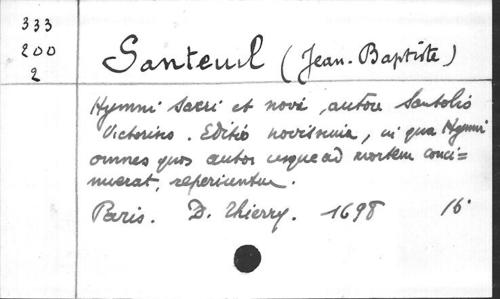 333
200
2
Santeuil (Jean-Baptiste)
Hymni sacri et novi, autore Santolio
Victorino. Editio novissima, in qua Hymni
omnes quos autor usque ad mortem conci=
nuerat, reperiuntur.
Paris. D. Thierry. 1698 16°